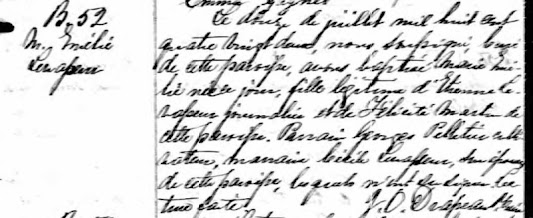 B. 52
M. Emélie
Levasseur
Le douze de juillet mil huit cent
quatre vingt deux, nous, soussigné, curé
de cette paroisse, avons baptisé Marie Emi-
lie née ce jour, fille légitime d'Etienne Le-
vasseur journalier et de Félicité Martin de
cette paroisse. Parrain Georges Pelletier cult-
ivateur, marraine Cécile Levasseur, son épouse
de cette paroisse, lesquels n'ont su signer. Lec-
ture faite. J. O. Drapeau Ptre